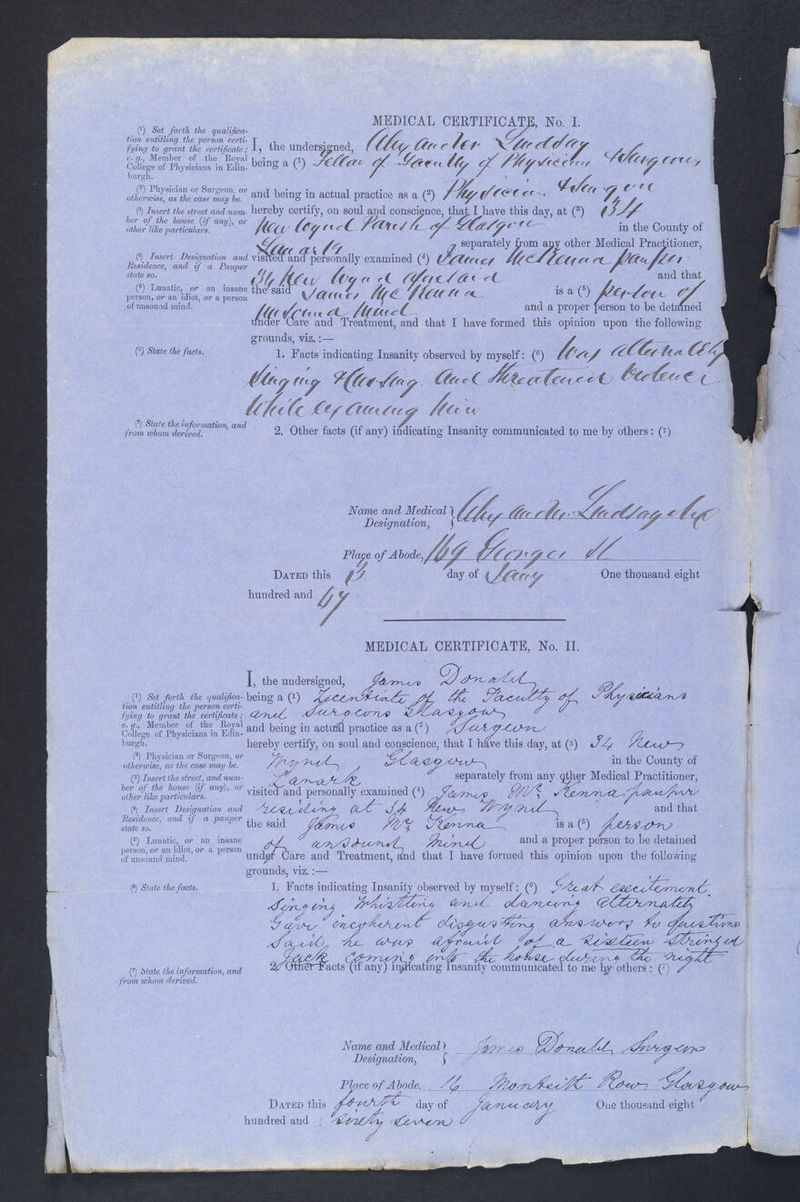 MEDICAL CERTIFICATE, No. I.
(1) Set forth the qualifica-
tion entitling the person certi-
fying to grant the certificate;
e. g., Member of the Royal
College of Physicians in Edin-
burgh.
(2) Physician or Surgeon, or
otherwise, as the case may be.
(3) Insert the street and num-
ber of the house (if any), or
other like particulars.
(4) Insert Designation and
Residence, and if a Pauper
state so.
(5) Lunatic, or an insane
person, or an idiot, or a person
of unsound mind.
(6) State the facts.
(7) State the information, and
from whom derived.
I, the undersigned, Alexander Lindsay
being a (1) Fellow of Faculty of Physicians & Surgeons
and being in actual practice as a (2) Physician & Surgeon
hereby certify, on soul and conscience, that I have this day, at (3) 34
New Wynd Parish of Glasgow in the County of
Lanark separately from any other Medical Practitioner,
visited and personally examined (4) James McKenna pauper
34 New Wynd and that
the said James McKenna is a (5) person of
Unsound Mind and a proper person to be detained
under Care and Treatment, and that I have formed this opinion upon the following
grounds, viz.:—
1. Facts indicating Insanity observed by myself: (6) Was alternately
Singing & Cursing and threatened Violence
While examining him
2. Other facts (if any) indicating Insanity communicated to me by others: (7)
Name and Medical Designation, Alexander Lindsay
Place of Abode, 169 George St
DATED this 3 day of Jany One thousand eight
hundred and 67
MEDICAL CERTIFICATE, No. II.
(1) Set forth the qualifica-
tion entitling the person certi-
fying to grant the certificate;
e. g., Member of the Royal
College of Physicians in Edin-
burgh.
(2) Physician or Surgeon, or
otherwise, as the case may be.
(3) Insert the street, and num-
ber of the house (if any), or
other like particulars.
(4) Insert Designation and
Residence, and if a pauper
state so.
(5) Lunatic, or an insane
person, or an idiot, or a person
of unsound mind.
(6) State the facts.
(7) State the information, and
from whom derived.
I, the undersigned, James Donald
being a (1) Licentiate of the Faculty of Physicians
and Surgeons Glasgow
and being in actual practice as a (2) Surgeon
hereby certify, on soul and conscience, that I have this day, at (3) 34 New
Wynd Glasgow in the County of
Lanark separately from any other Medical Practitioner,
visited and personally examined (4) James McKenna pauper
residing at 34 New Wynd and that
the said James McKenna is a (5) person
of unsound Mind and a proper person to be detained
under Care and Treatment, and that I have formed this opinion upon the following
grounds, viz.:—
1. Facts indicating Insanity observed by myself: (6) Great excitement.
Singing Whistling and dancing alternately
Gave incoherent disgusting answers to questions
Said he was afraid of a sixteen stringed
Jack coming into the house during the night
2. Other Facts (if any) indicating Insanity communicated to me by others: (7)
Name and Medical Designation, James Donald Surgeon
Place of Abode. 16 Monteith Row Glasgow
DATED this fourth day of January One thousand eight
hundred and sixty seven